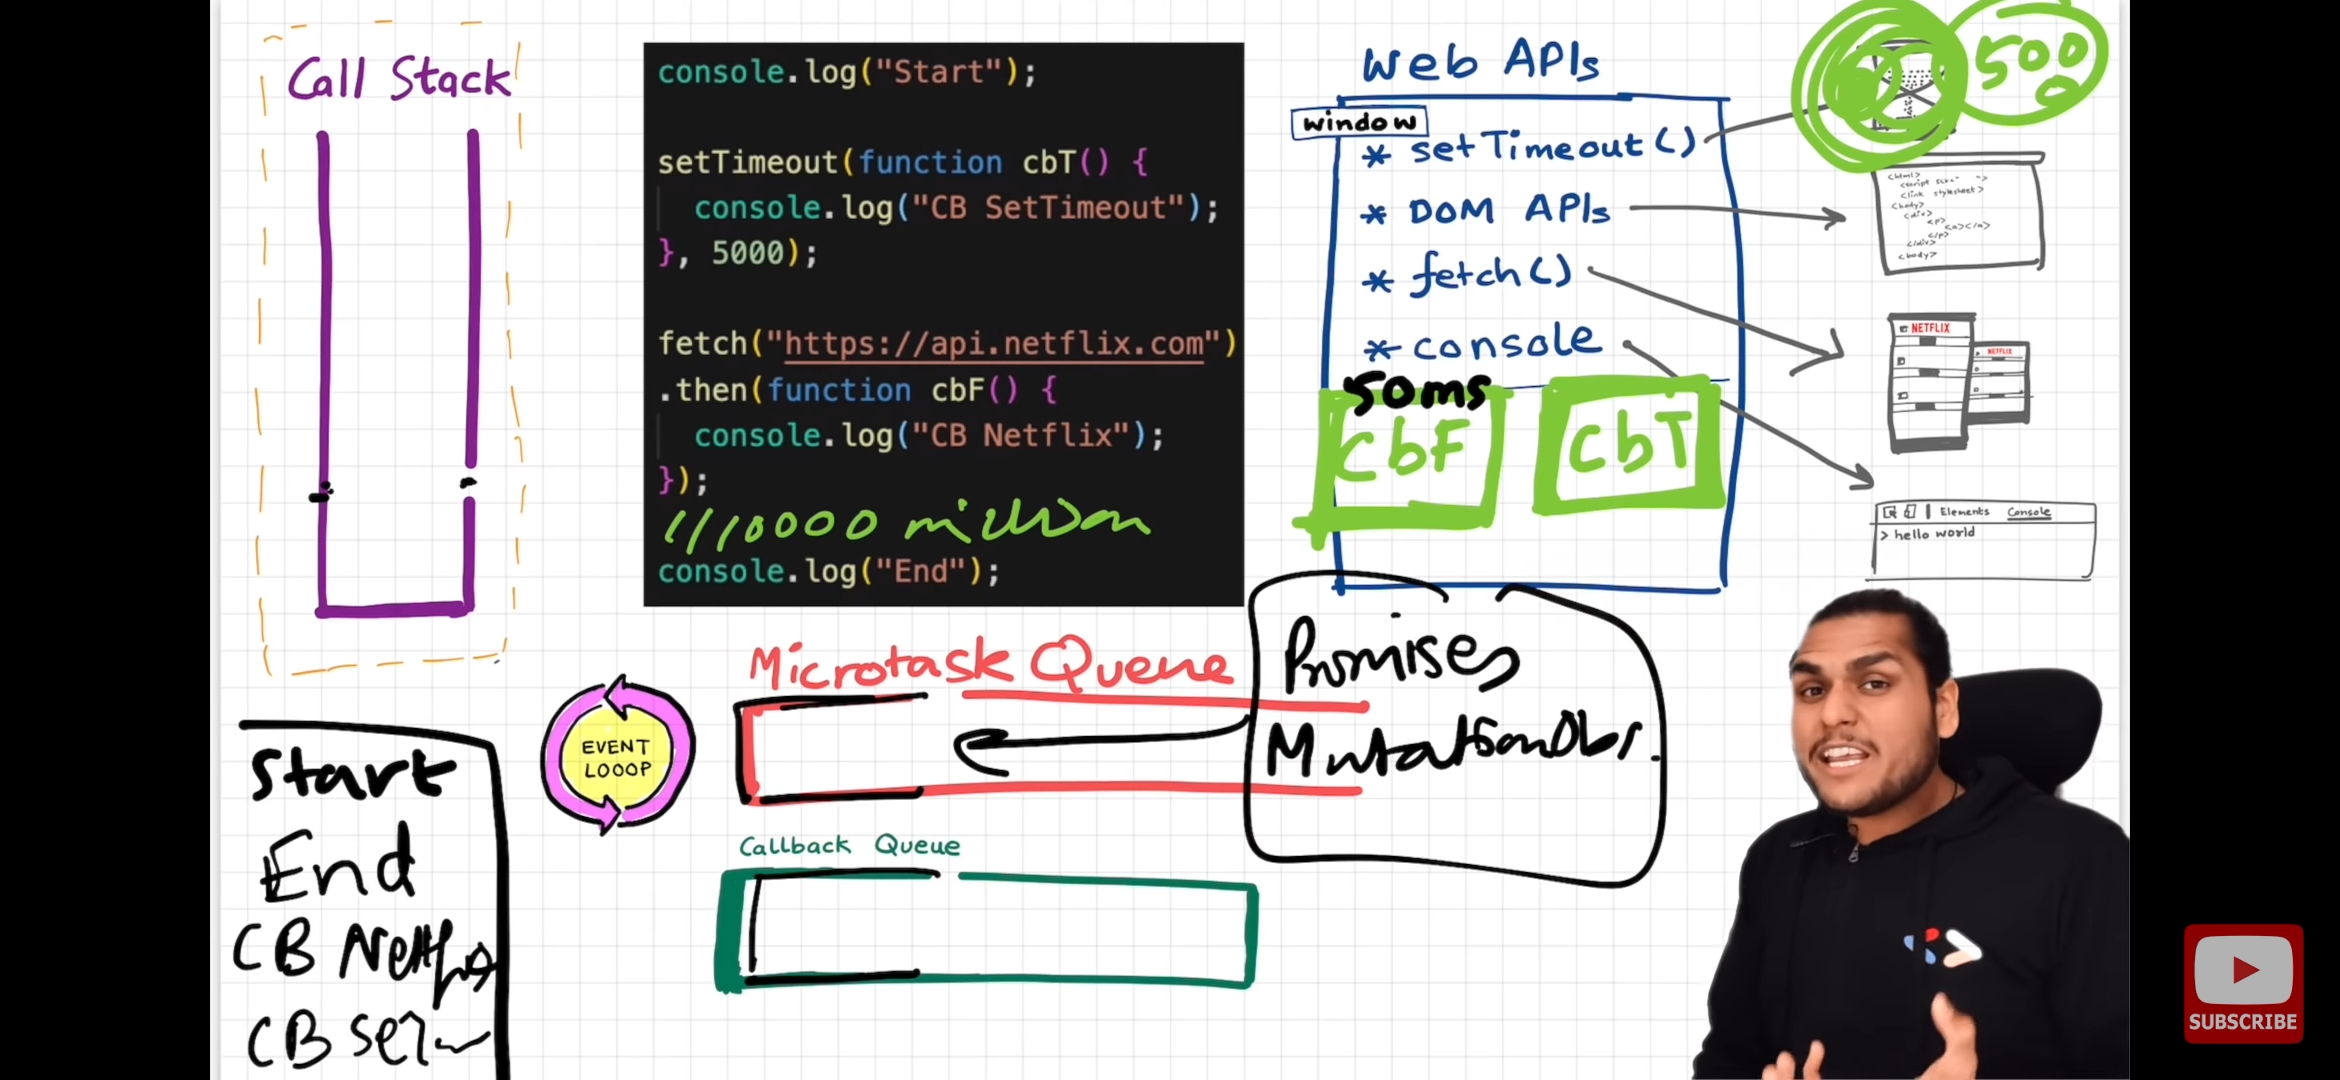 Call Stack
console.log("Start");
setTimeout(function cbT() {
console.log("CB SetTimeout");
}, 5000);
fetch("https://api.netflix.com")
.then(function cbF() {
console.log("CB Netflix");
});
//10000 million
console.log("End");
Web APIs
window
* setTimeout()
* DOM APIs
* fetch()
* console
50ms
CbF
CbT
5000
<html>
<link stylesheet>
<body>
<div>
<p>
<a></a>
</p>
</div>
<body>
NETFLIX
NETFLIX
Elements Console
> hello world
Microtask Queue
Promises
MutationObs.
EVENT
LOOOP
Callback Queue
Start
End
CB Netflix
CB
SUBSCRIBE